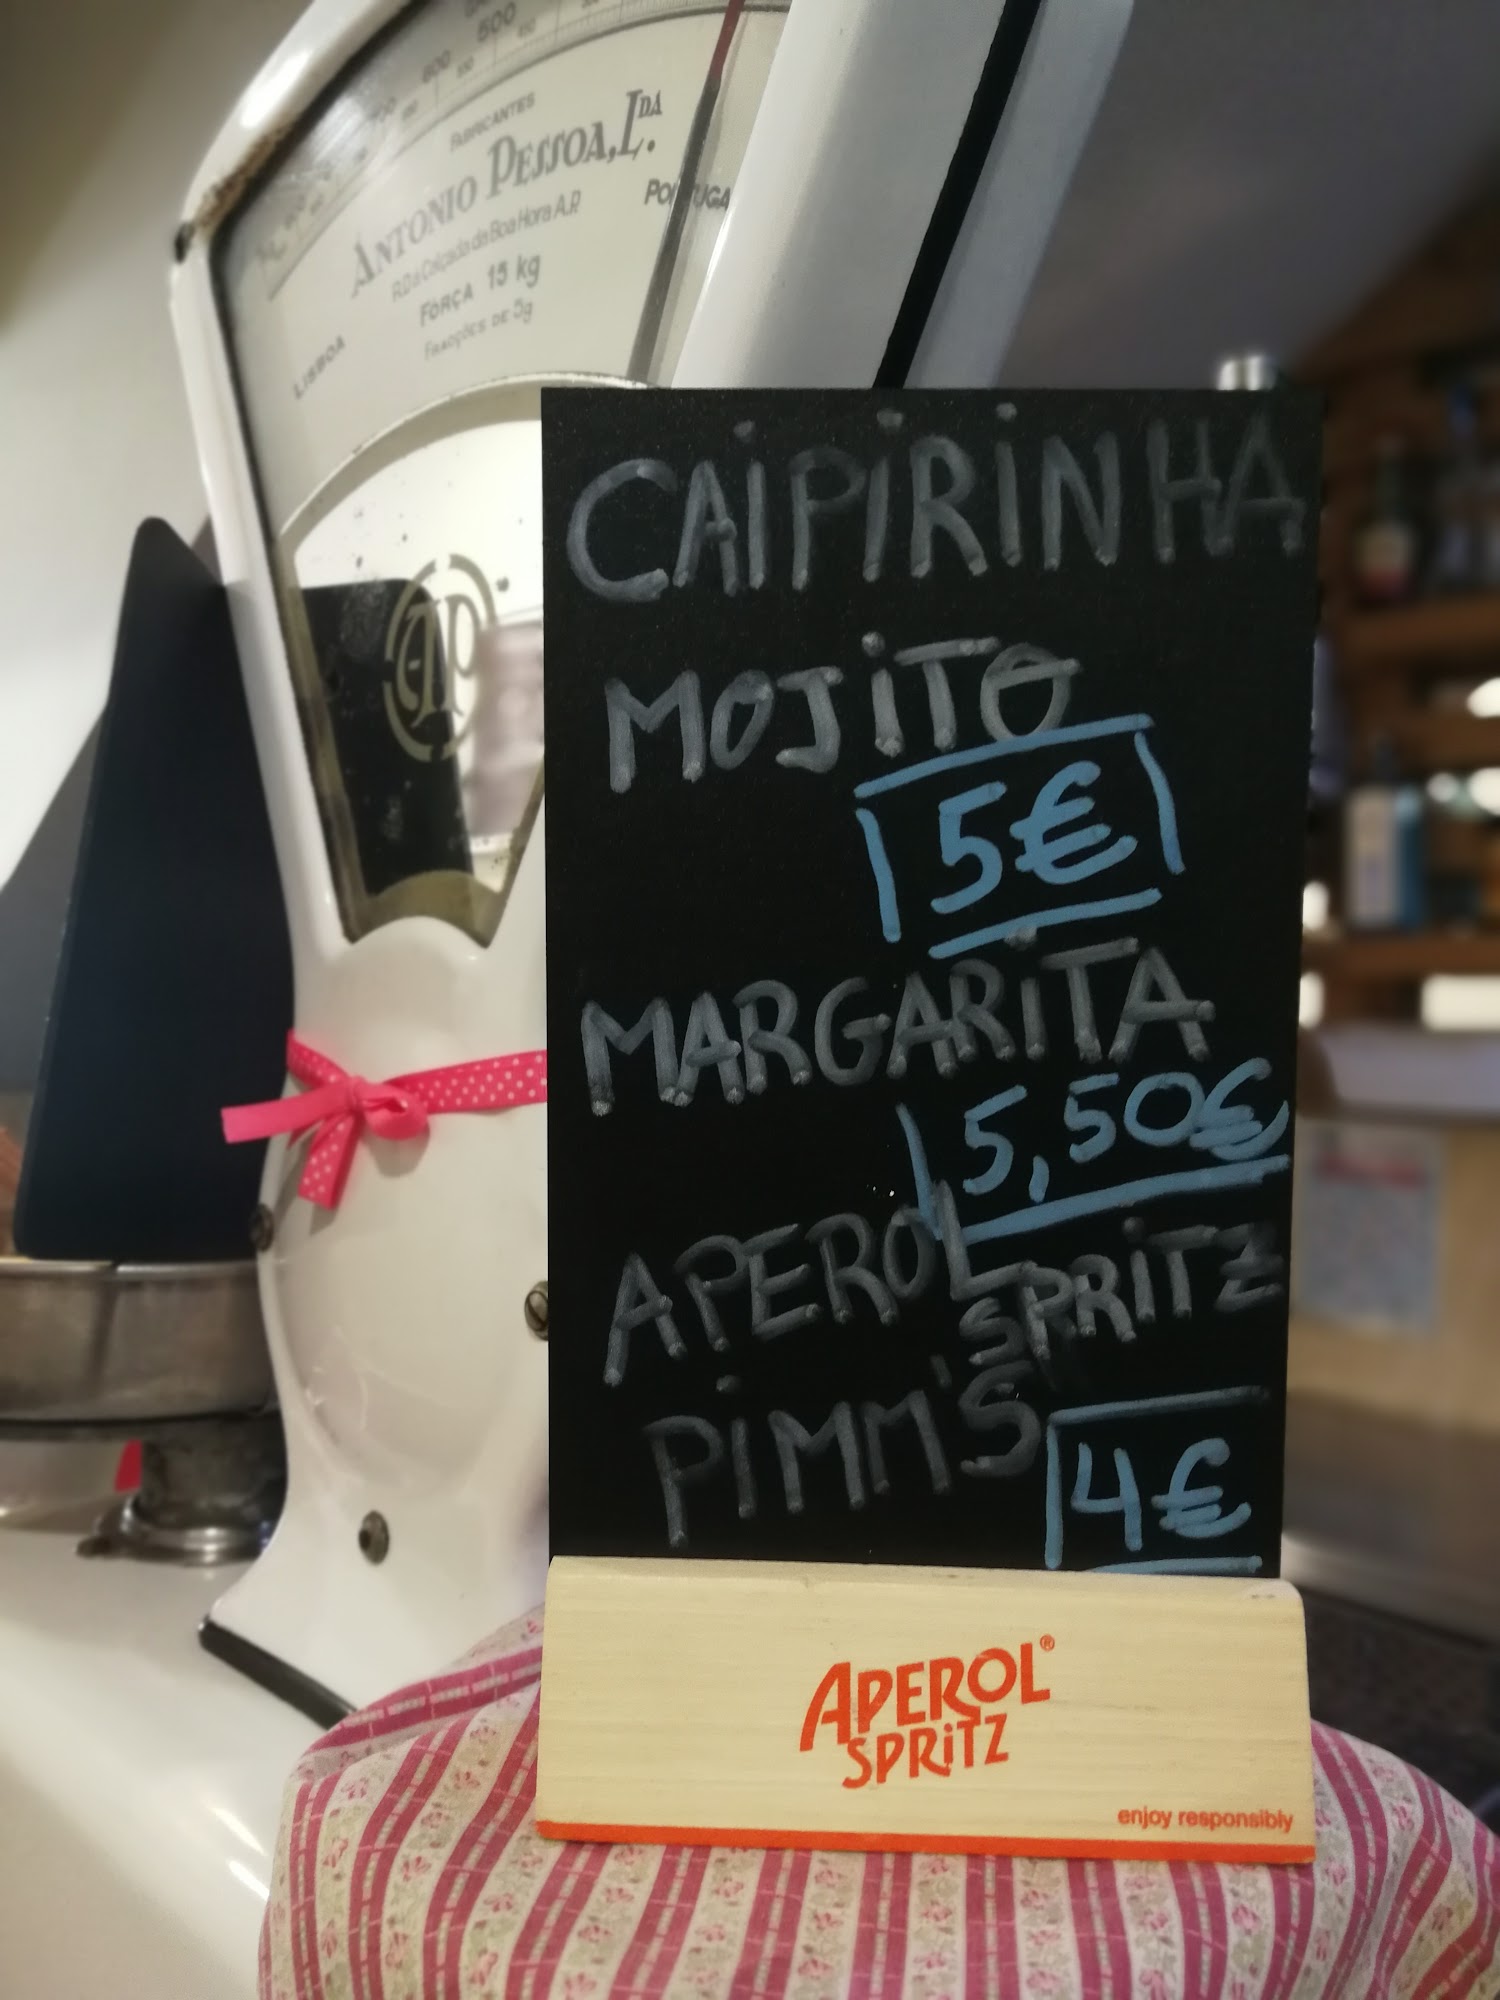 500
600
FABRICANTES
ANTONIO PESSOA, LDA.
PORTUGA
R. Da Calçada da Boa Hora A.P.
FÔRÇA 15 kg
FRACÇÕES DE 5g
LISBOA
AP
CAIPIRINHA
MOJITO
5€
MARGARITA
5,50€
APEROL
SPRITZ
PIMM'S
4€
APEROL®
SPRITZ
enjoy responsibly